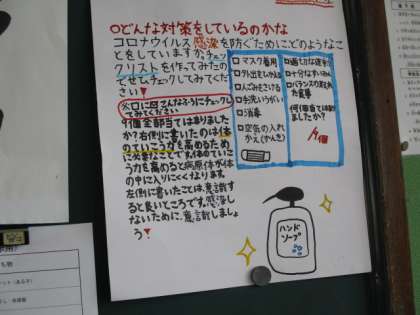 ○どんな対策をしているのかな
コロナウイルス感染を防ぐためにどのようなこ
とをしていますか。チェッ
クリストを作ってみたの
でぜひチェックしてみてくだ
さい
※□に☑こんなふうにチェックし
てみてください
9個全部当てはまりました
か?右側に書いたのは体
のていこう力を高めるため
に必要なことです。体のていこ
う力を高めると病原体が体
の中に入りにくくなります。
左側に書いたことは、意識す
ると良いところです。感染し
ないために、意識しましょ
う!
□マスク着用
□外出をひかえる
□人ごみをさける
□手洗いうがい
□消毒
□空気の入れ
かえ(かんき)
□適切な運動
□十分なすいみん
□バランスの取れ
た食事
何個当てはまり
ましたか?
/9個
ハンド
ソープ